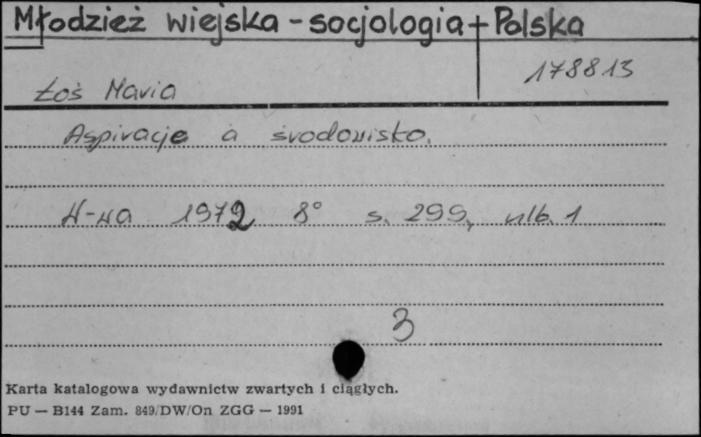 Młodzież wiejska - socjologia + Polska
178813
Łoś Maria
Aspiracje a środowisko.
W-wa 1972 8° s. 299, nlb. 1
3
Karta katalogowa wydawnictw zwartych i ciągłych.
PU — B144 Zam. 849/DW/On ZGG — 1991